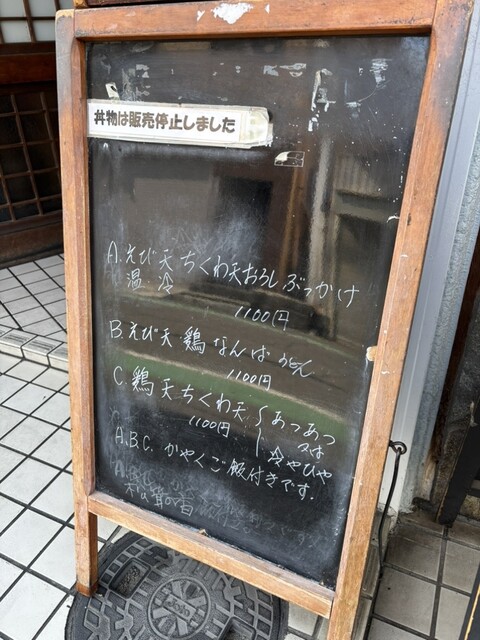 丼物は販売停止しました
A. えび天 ちくわ天おろし ぶっかけ
温 冷
1100円
B. えび天 鶏 なんば うどん
1100円
C. 鶏天 ちくわ天 あつあつ
1100円
冷やひや
A.B.C. かやくご飯付きです.